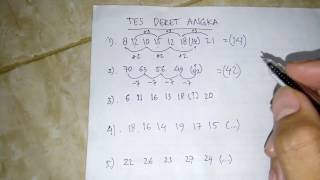 TES DERET ANGKA
+3 +3 +3
1). 8 12 10 15 12 18 (14) 21 = (14)
+2 +2 +2
2). 70 63 56 49 (?) = (42)
-7 -7 -7 -7
3). 6 11 16 13 18 (?) 20
4). 18 16 14 19 17 15 (...)
5). 22 26 23 27 24 (...)